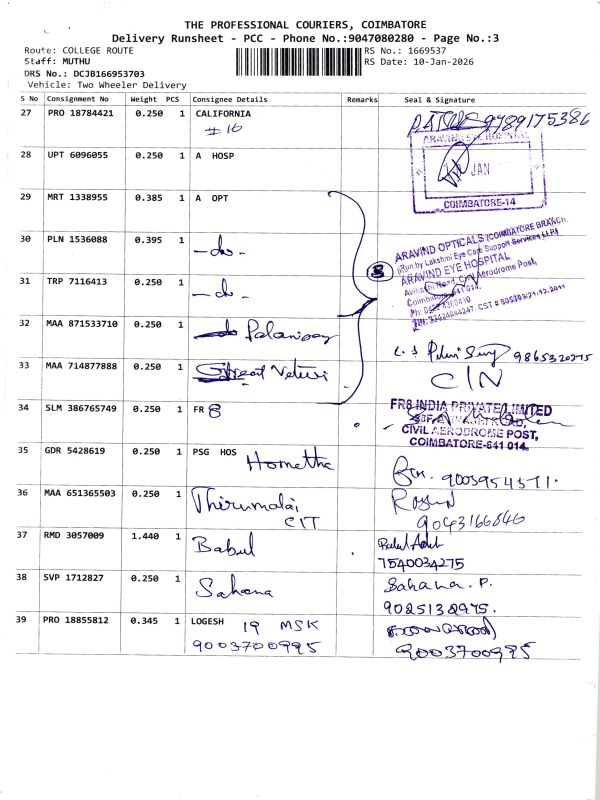 THE PROFESSIONAL COURIERS, COIMBATORE
Delivery Runsheet - PCC - Phone No.:9047080280 - Page No.:3
Route: COLLEGE ROUTE
RS No.: 1669537
Staff: MUTHU
RS Date: 10-Jan-2026
DRS No.: DCJB166953703
Vehicle: Two Wheeler Delivery
S No Consignment No Weight PCS Consignee Details Remarks Seal & Signature
27 PRO 18784421 0.250 1 CALIFORNIA 9789175386
#16
ARAVIND EYE HOSPITAL
28 UPT 6096055 0.250 1 A HOSP
JAN
29 MRT 1338955 0.385 1 A OPT
COIMBATORE-14
30 PLN 1536088 0.395 1 -do-
3
ARAVIND OPTICALS (COIMBATORE BRANCH)
(Run by Lakshmi Eye Care Support Services LLP)
ARAVIND EYE HOSPITAL
Avinashi Road, Civil Aerodrome Post,
31 TRP 7116413 0.250 1 -do-
32 MAA 871533710 0.250 1 Palanisay
9865320275
33 MAA 714877888 0.250 1 Great Veturi
CIN
34 SLM 386765749 0.250 1 FR 8
FR8 INDIA PRIVATE LIMITED
CIVIL AERODROME POST,
COIMBATORE-641 014.
35 GDR 5428619 0.250 1 PSG HOS
Hometha
9003954571.
36 MAA 651365503 0.250 1 Thirumalai
CIT
9043166846
37 RMD 3057009 1.440 1 Babul
7540034275
38 SVP 1712827 0.250 1 Sahana Sahana. P.
9025132975.
39 PRO 18855812 0.345 1 LOGESH 19 MSK
9003700995 9003700995